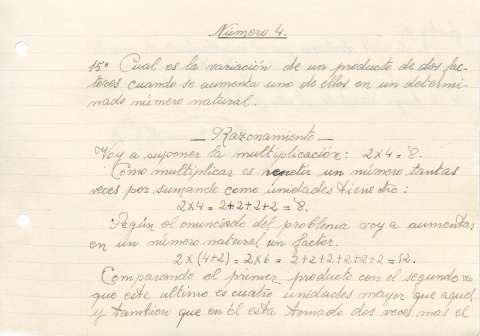 Número 4.
15º Cual es la variación de un producto de dos fac-
tores cuando se aumenta uno de ellos en un determi-
nado número natural.
— Razonamiento —
Voy a suponer la multiplicación: 2 x 4 = 8.
Como multiplicar es repetir un número tantas
veces por sumando como unidades tiene otro:
2 x 4 = 2+2+2+2 = 8.
Según el enunciado del problema voy a aumentar
en un número natural un factor.
2 x (4+2) = 2 x 6 = 2+2+2+2+2+2 = 12.
Comparando el primer producto con el segundo veo
que este ultimo es cuatro unidades mayor que aquel
y tambien que en él esta tomado dos veces mas el